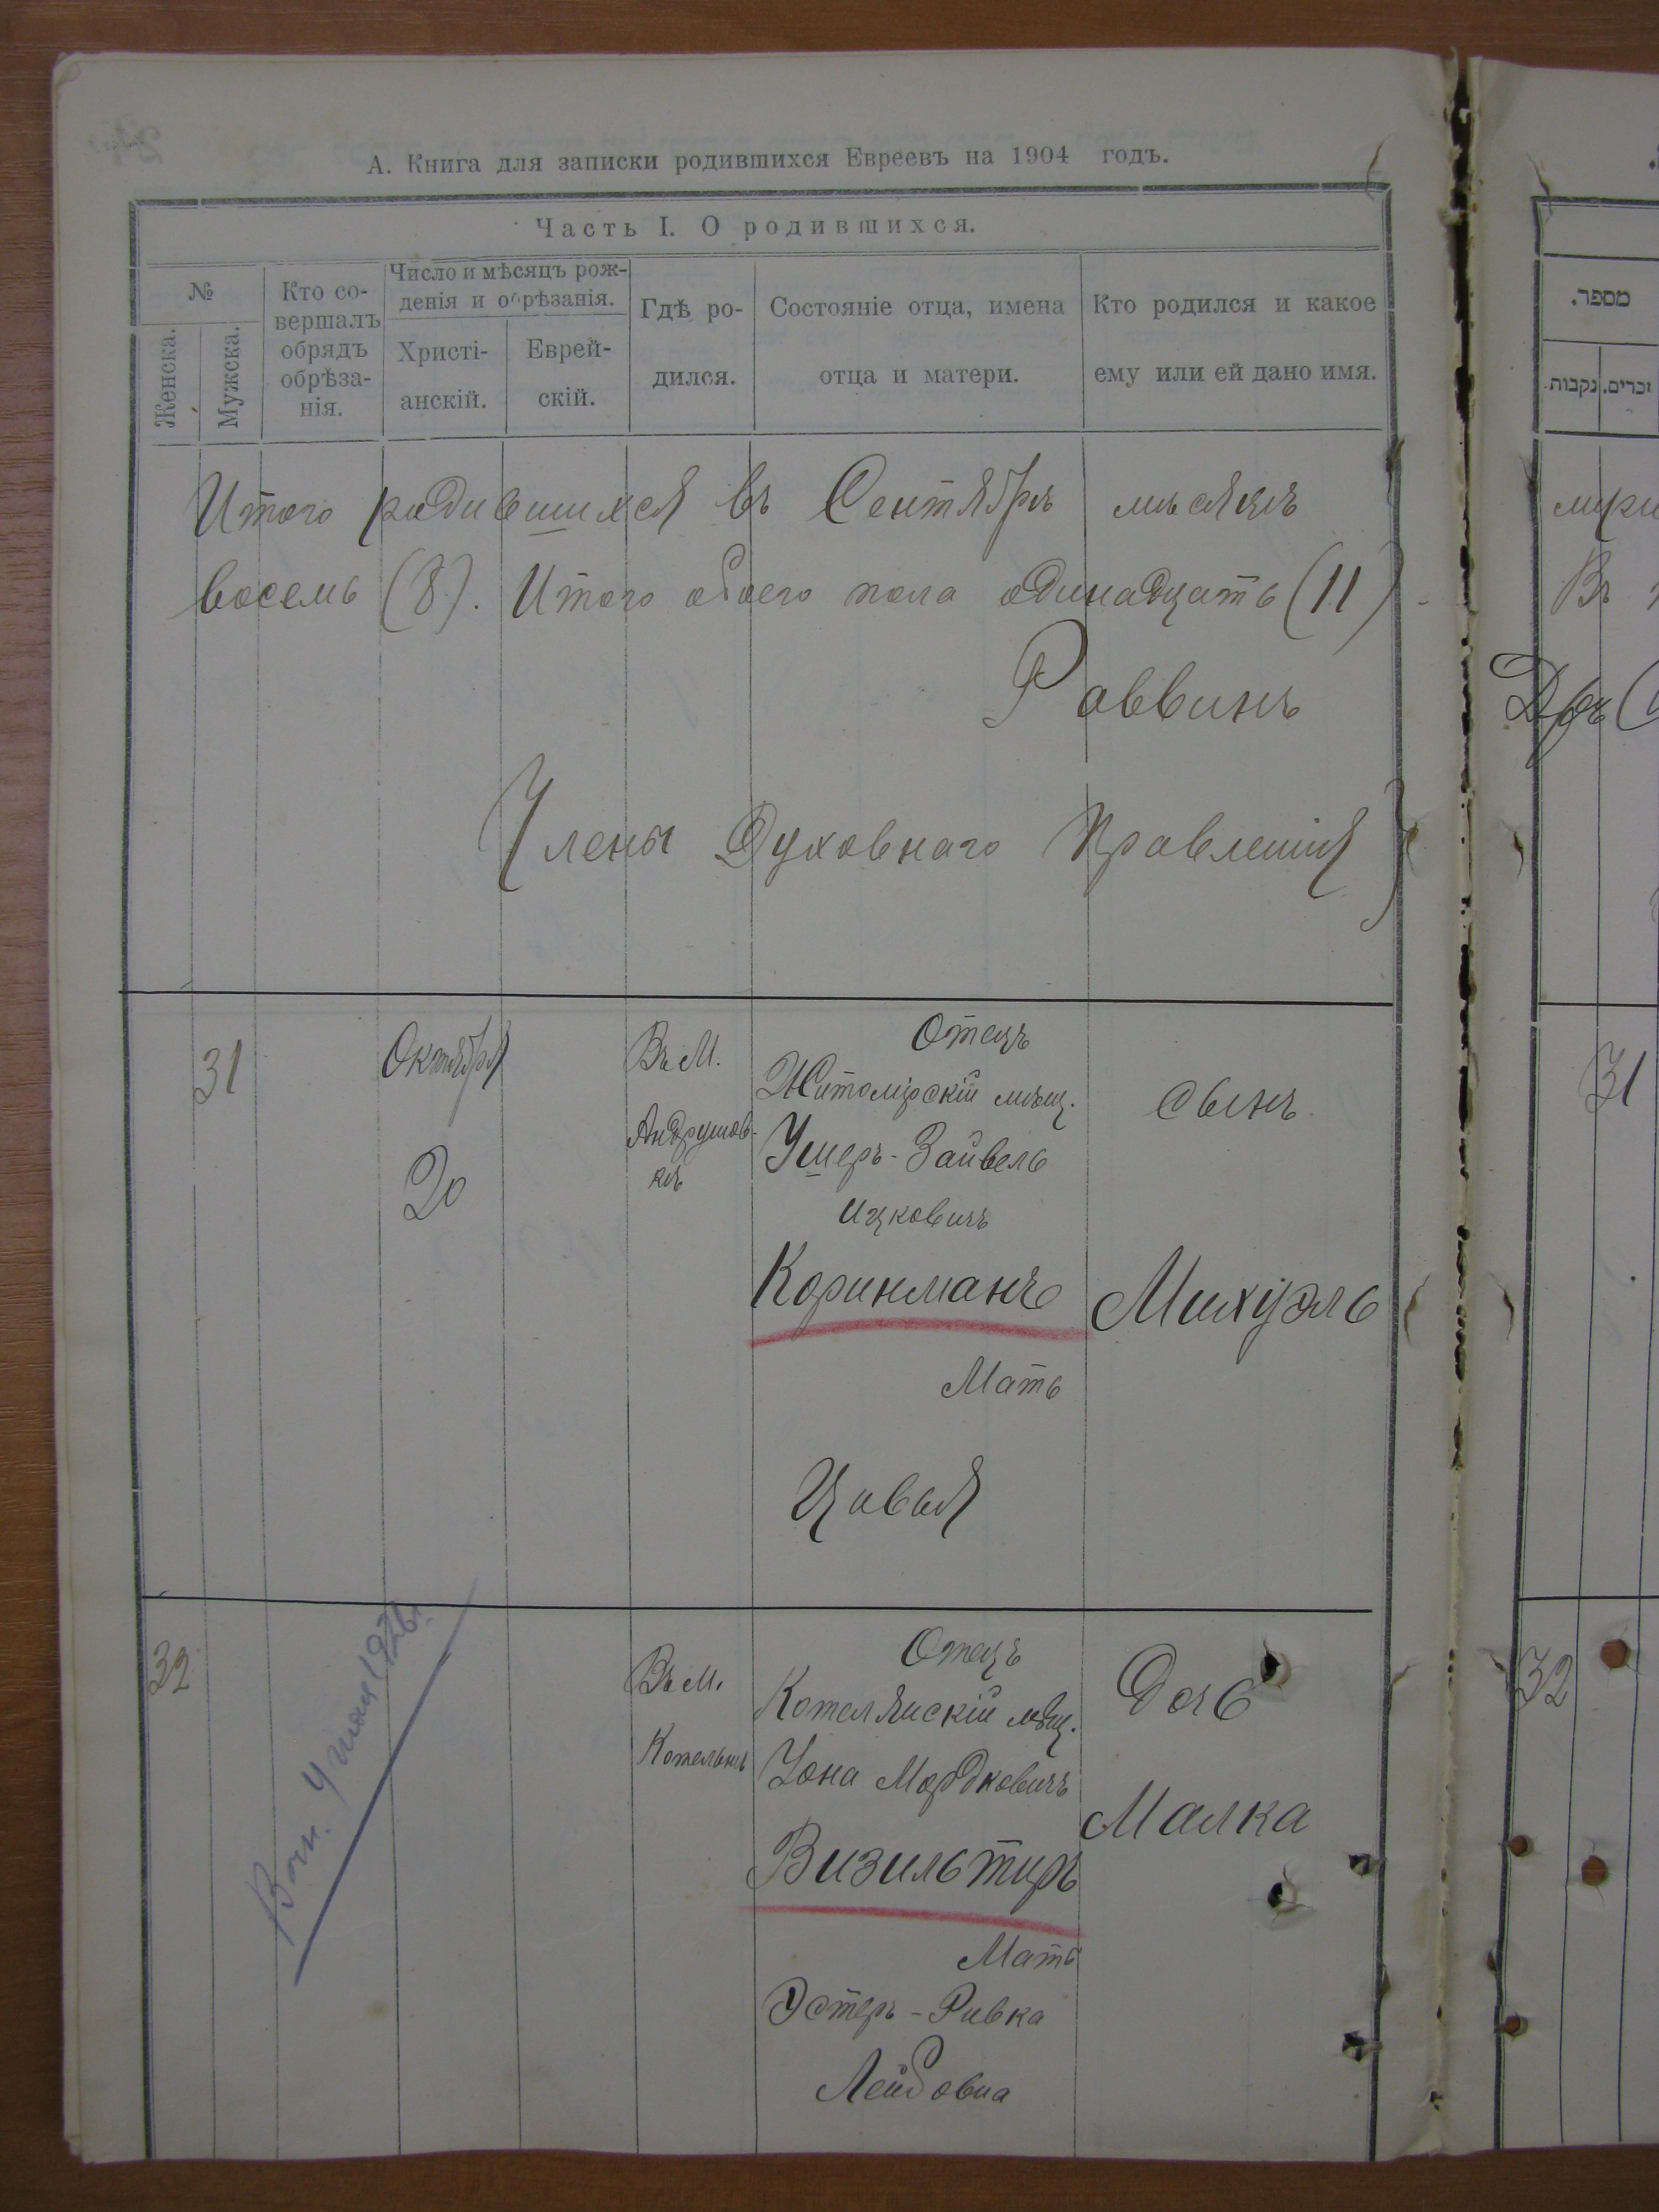 А. Книга для записки родившихся Евреевъ на 1904 годъ.
Часть I. О родившихся.
№
Женска.
Мужска.
Кто со-
вершалъ
обрядъ
обрѣза-
нія.
Число и мѣсяцъ рож-
денія и обрѣзанія.
Христі-
анскій.
Еврей-
скій.
Гдѣ ро-
дился.
Состояніе отца, имена
отца и матери.
Кто родился и какое
ему или ей дано имя.
Итого родившихся въ Сентябрѣ мѣсяцѣ
восемь (8). Итого обоего пола одинадцать (11)
Раввинъ
Члены Духовнаго Правленія }
31
Октября
20
Въ М.
Андрушов-
кѣ
Отецъ
Житомірскій мѣщ.
Ушеръ-Зайвель
Ицковичъ
Коринманъ
Мать
Цивья
Сынъ
Михуэль
32
Въ М.
Котельнѣ
Отецъ
Котелянскій мѣщ.
Іона Мордковичъ
Визильтиръ
Мать
Эстеръ-Ривка
Лейбовна
Дочь
Малка
1926г.
מספר.
זכרים.
נקבות
Въ
31
32